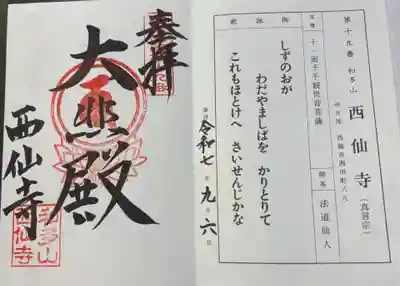 第十九番 和多山
西仙寺
(真言宗)
所在地 西脇市西田町八八
本尊
十一面千手観世音菩薩
開基
法道仙人
御詠歌
しずのおが
わだやましばを かりとりて
これもほとけへ さいせんじかな
令和七年九月六
奉拝
大悲殿
西仙寺
和多山
西仙寺